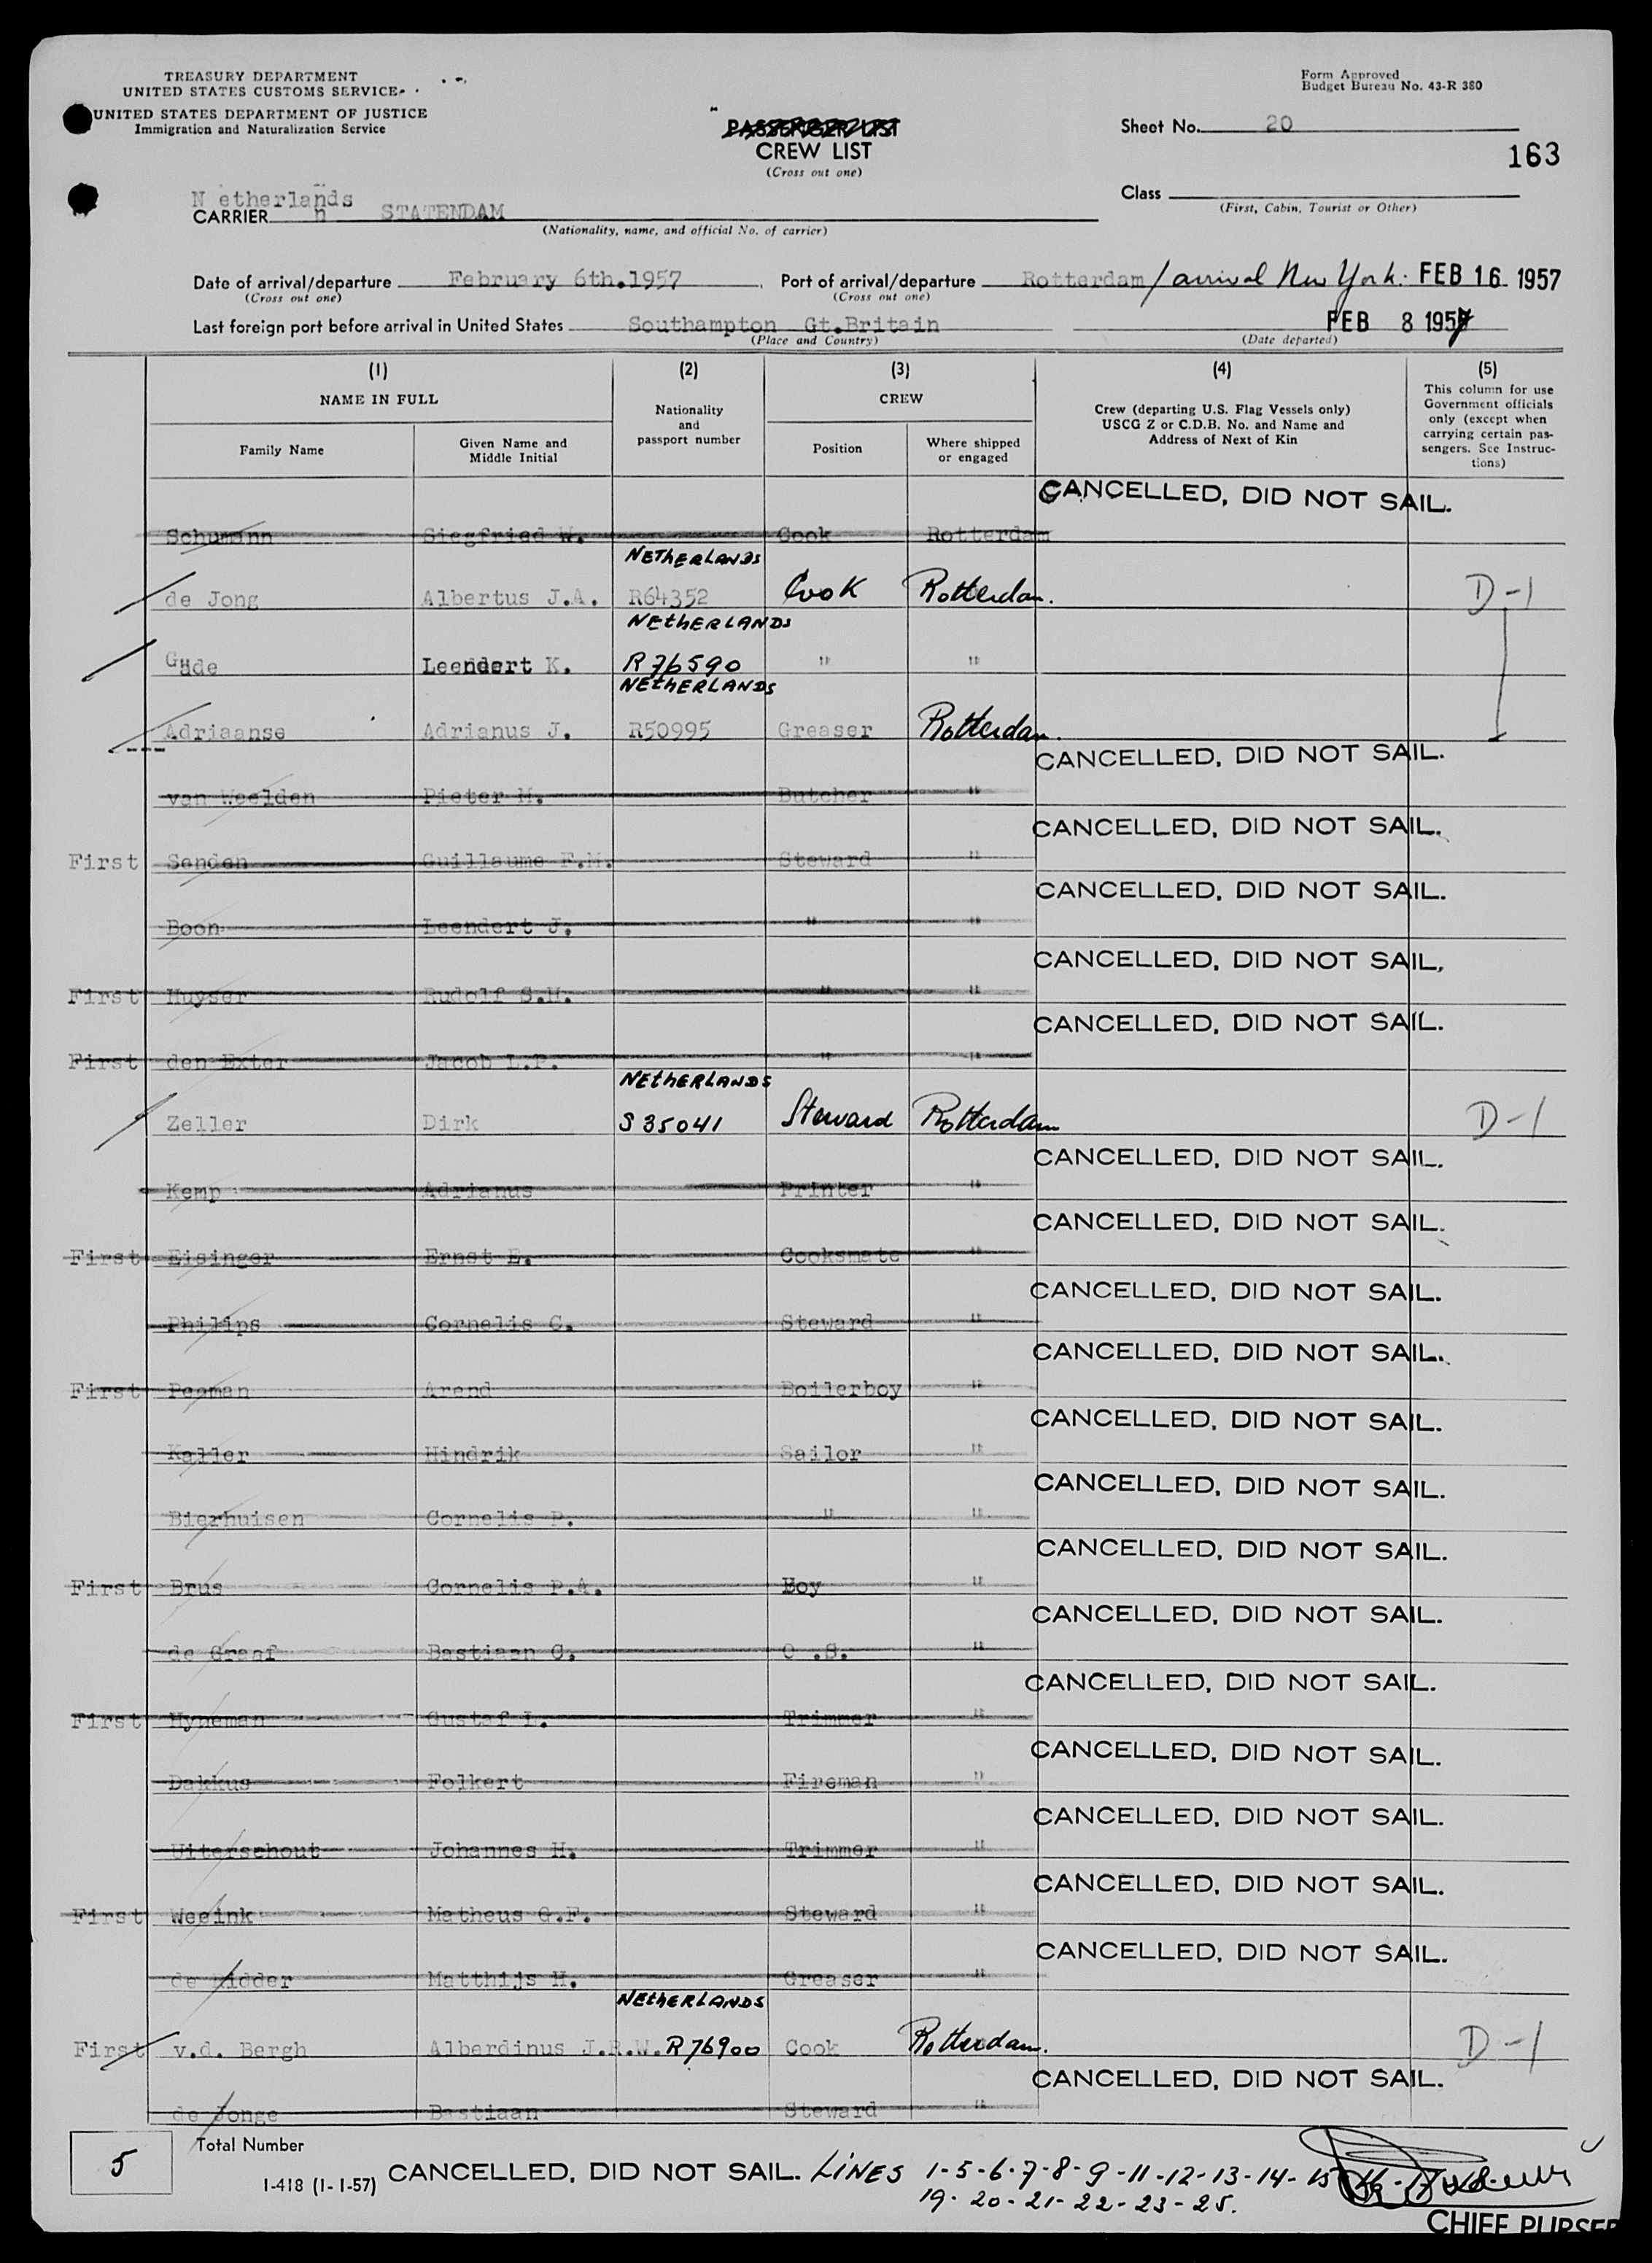 TREASURY DEPARTMENT
UNITED STATES CUSTOMS SERVICE
UNITED STATES DEPARTMENT OF JUSTICE
Immigration and Naturalization Service
Form Approved
Budget Bureau No. 43-R 380
PASSENGER LIST
CREW LIST
(Cross out one)
Sheet No. 20
163
Class
(First, Cabin, Tourist or Other)
Netherlands
CARRIER STATENDAM
(Nationality, name, and official No. of carrier)
Date of arrival/departure February 6th.1957 Port of arrival/departure Rotterdam / arrival New York. FEB 16 1957
(Cross out one) (Cross out one)
Last foreign port before arrival in United States Southampton Gt.Britain FEB 8 1957
(Place and Country) (Date departed)
(1) (2) (3) (4) (5)
NAME IN FULL
Family Name
Given Name and Middle Initial
Nationality and passport number
CREW
Position
Where shipped or engaged
Crew (departing U.S. Flag Vessels only) USCG Z or C.D.B. No. and Name and Address of Next of Kin
This column for use Government officials only (except when carrying certain passengers. See Instructions)
CANCELLED, DID NOT SAIL.
Schumann Siegfried W. Cook Rotterdam
NETHERLANDS
de Jong Albertus J.A. R64352 Cook Rotterdam. D-1
NETHERLANDS
Gude Leendert K. R76590 " "
NETHERLANDS
Adriaanse Adrianus J. R50995 Greaser Rotterdam.
CANCELLED, DID NOT SAIL.
van Weelden Pieter M. Butcher "
CANCELLED, DID NOT SAIL.
First Senden Guillaume F.M. Steward "
CANCELLED, DID NOT SAIL.
Boon Leendert J. " "
CANCELLED, DID NOT SAIL.
First Huyser Rudolf S.H. " "
CANCELLED, DID NOT SAIL.
First den Exter Jacob L.P. " "
NETHERLANDS
Zeller Dirk S35041 Steward Rotterdam D-1
CANCELLED, DID NOT SAIL.
Kemp Adrianus Printer "
CANCELLED, DID NOT SAIL.
First Eisinger Ernst E. Cooksmate "
CANCELLED, DID NOT SAIL.
Philips Cornelis C. Steward "
CANCELLED, DID NOT SAIL.
First Peaman Arend Boilerboy "
CANCELLED, DID NOT SAIL.
Kaller Hindrik Sailor "
CANCELLED, DID NOT SAIL.
Bierhuisen Cornelis P. " "
CANCELLED, DID NOT SAIL.
First Brus Cornelis P.A. Boy "
CANCELLED, DID NOT SAIL.
de Graaf Bastiaan C. O.S. "
CANCELLED, DID NOT SAIL.
First Hyneman Gustaf L. Trimmer "
CANCELLED, DID NOT SAIL.
Dakkus Folkert Fireman "
CANCELLED, DID NOT SAIL.
Uiterschout Johannes H. Trimmer "
CANCELLED, DID NOT SAIL.
First Weeink Matheus G.F. Steward "
CANCELLED, DID NOT SAIL.
de Ridder Matthijs H. Greaser "
NETHERLANDS
First v.d. Bergh Alberdinus J.R.W. R76900 Cook Rotterdam. D-1
CANCELLED, DID NOT SAIL.
de Jonge Bastiaan Steward "
5 Total Number
I-418 (1-1-57) CANCELLED, DID NOT SAIL. LINES 1-5-6-7-8-9-11-12-13-14-15-16-17-18-
19-20-21-22-23-25.
CHIEF PURSER